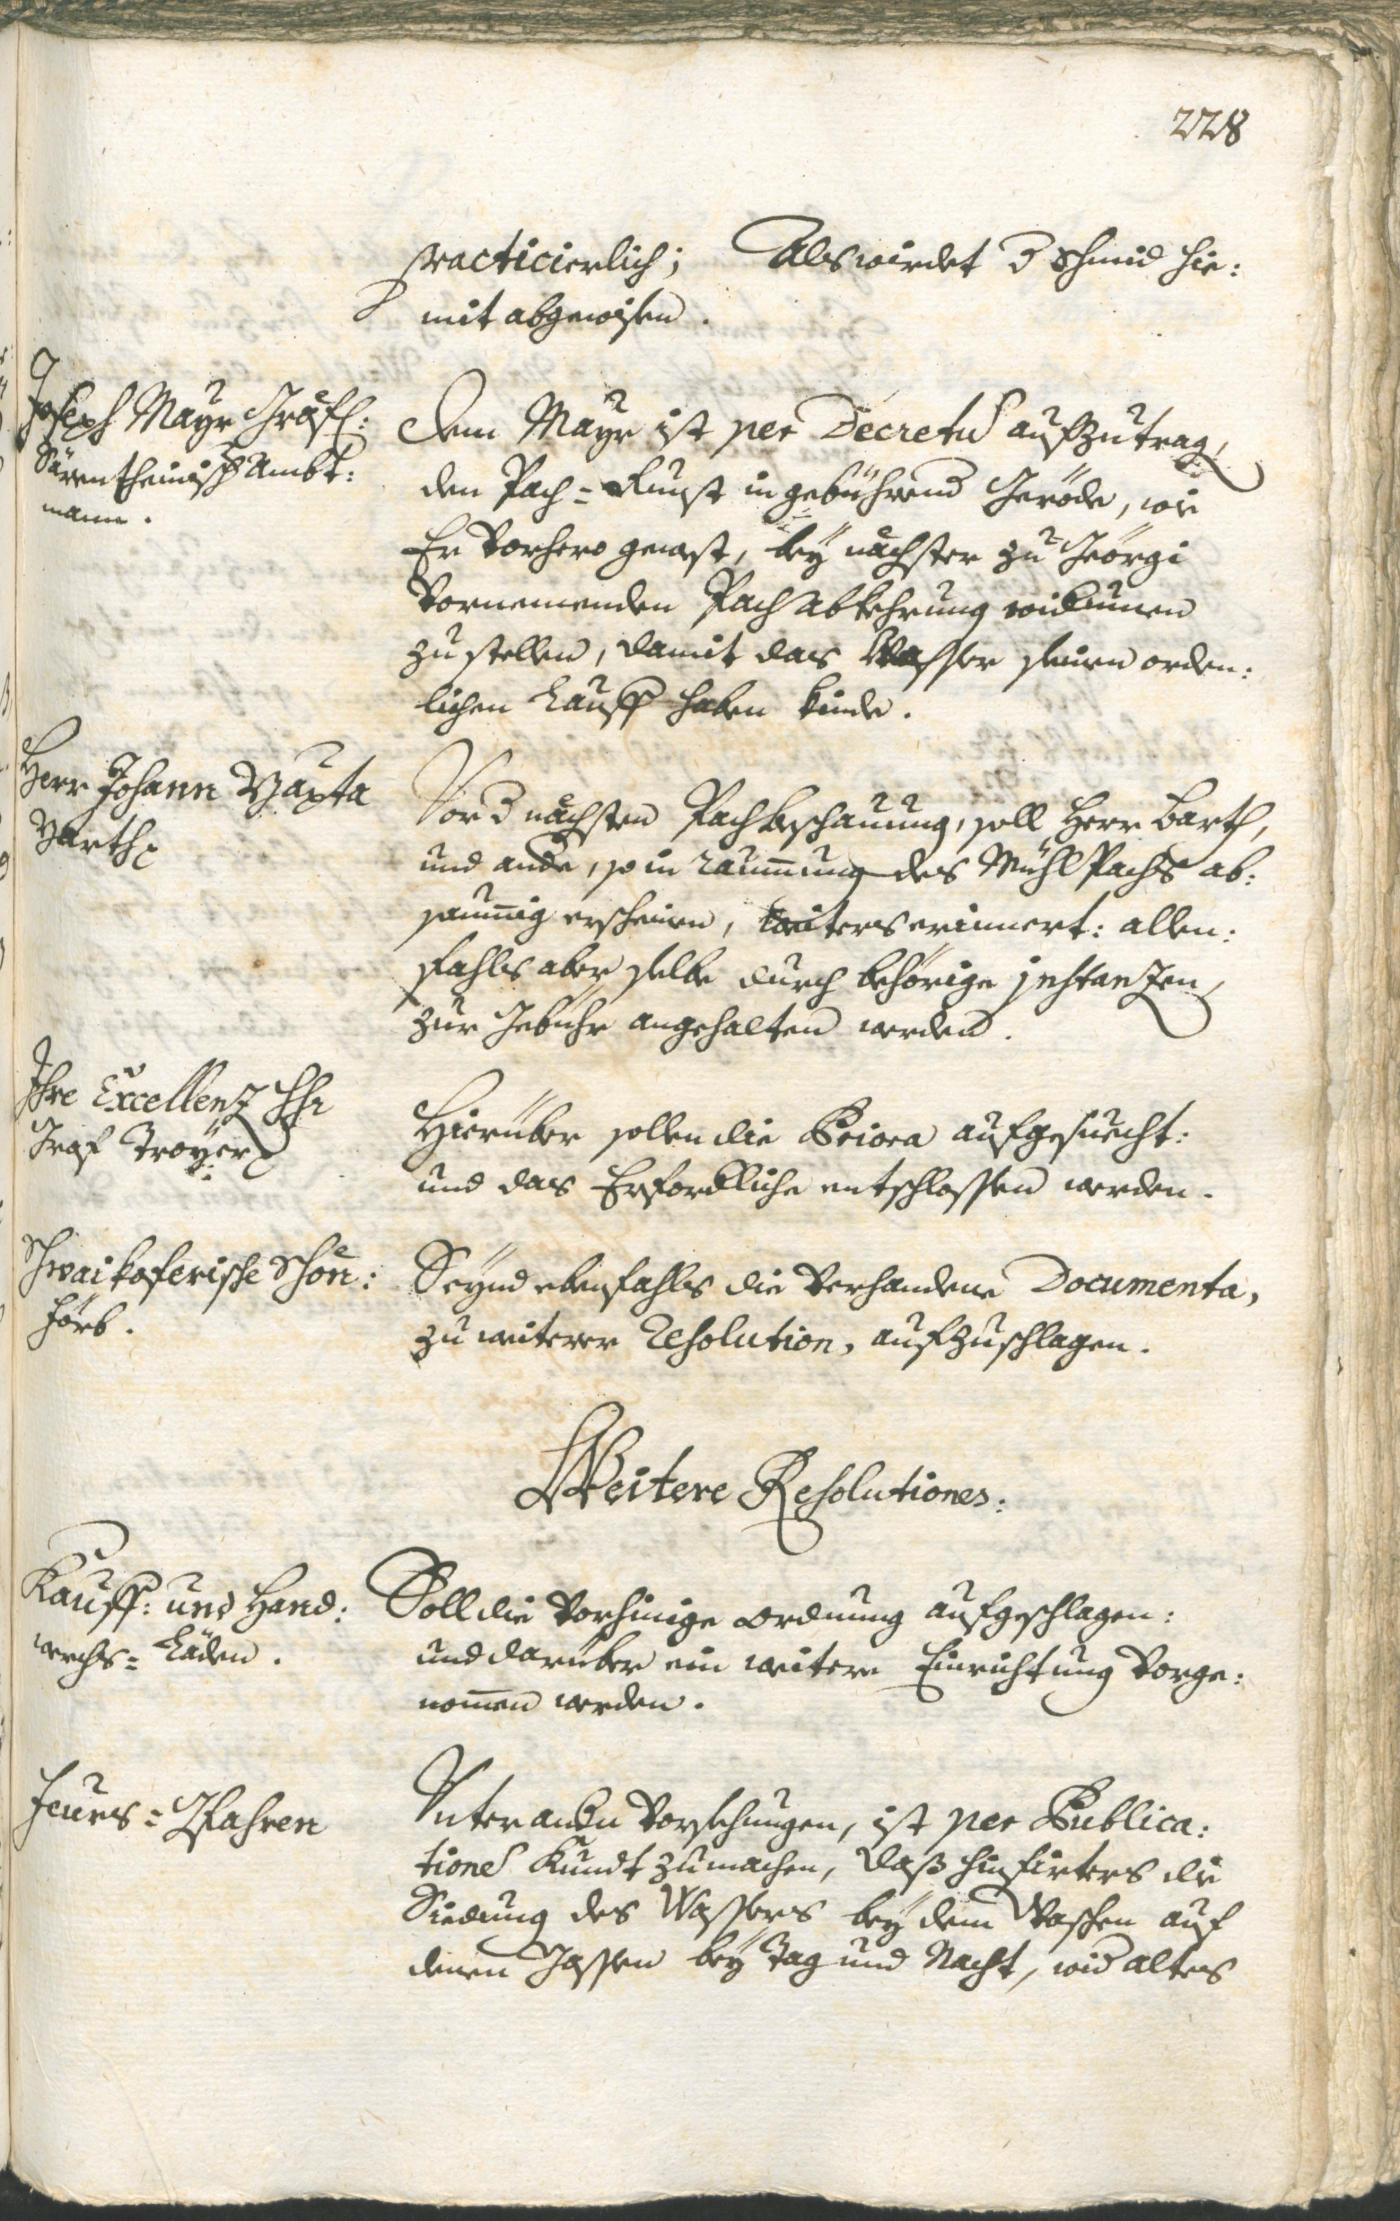 228
practicierlich; Als wirdet d Schmid hie:
mit abgewisen.
Joseph Mayr Gräfl:
Särentheinisch Ambt:
mann.
Dem Mayr ist per Decretu aufzutrag,
den Pach= Runst in gebührend Geröde, wie
Er vorhero gewest, bey nächster zu Georgi
vornemenden Pach Abkehrung widerumen
zu stellen, damit das Wasser seinen orden:
lichen Lauff haben kinde.
Herr Johann Bapta
Barth
Vor d nächsten Pachbeschauung, soll Herr Barth,
und andre, so in raumung des Mühl Pachs ab:
saumig erscheinen, weiters erinnert: allen:
fahls aber selbe durch behörige jnstanzen,
zur Gebühr angehalten werden.
Ihre Excellenz Hr
Graf Troyer
Hierüber sollen die Priora aufgesuecht:
und das Erforderliche entschlossen werden.
Schwaikoferische Schön:
hörb.
Seynd ebenfahls die verhandene Documenta,
zu weiterer Resolution, aufzuschlagen.
Weitere Resolutiones:
Kauff: und Hand:
werchs= Läden.
Soll die vorhinige ordnung aufgeschlagen:
und darüber ein weitere Einrichtung vorge:
nomen werden.
Feurs= Gfahren
Unter andern vorsehungen, ist per Publica:
tione Kundt zumachen, daß hinfirters die
Siedung des Wassers bey dem Waschen auf
denen Gassen bey Tag und Nacht, wid altes